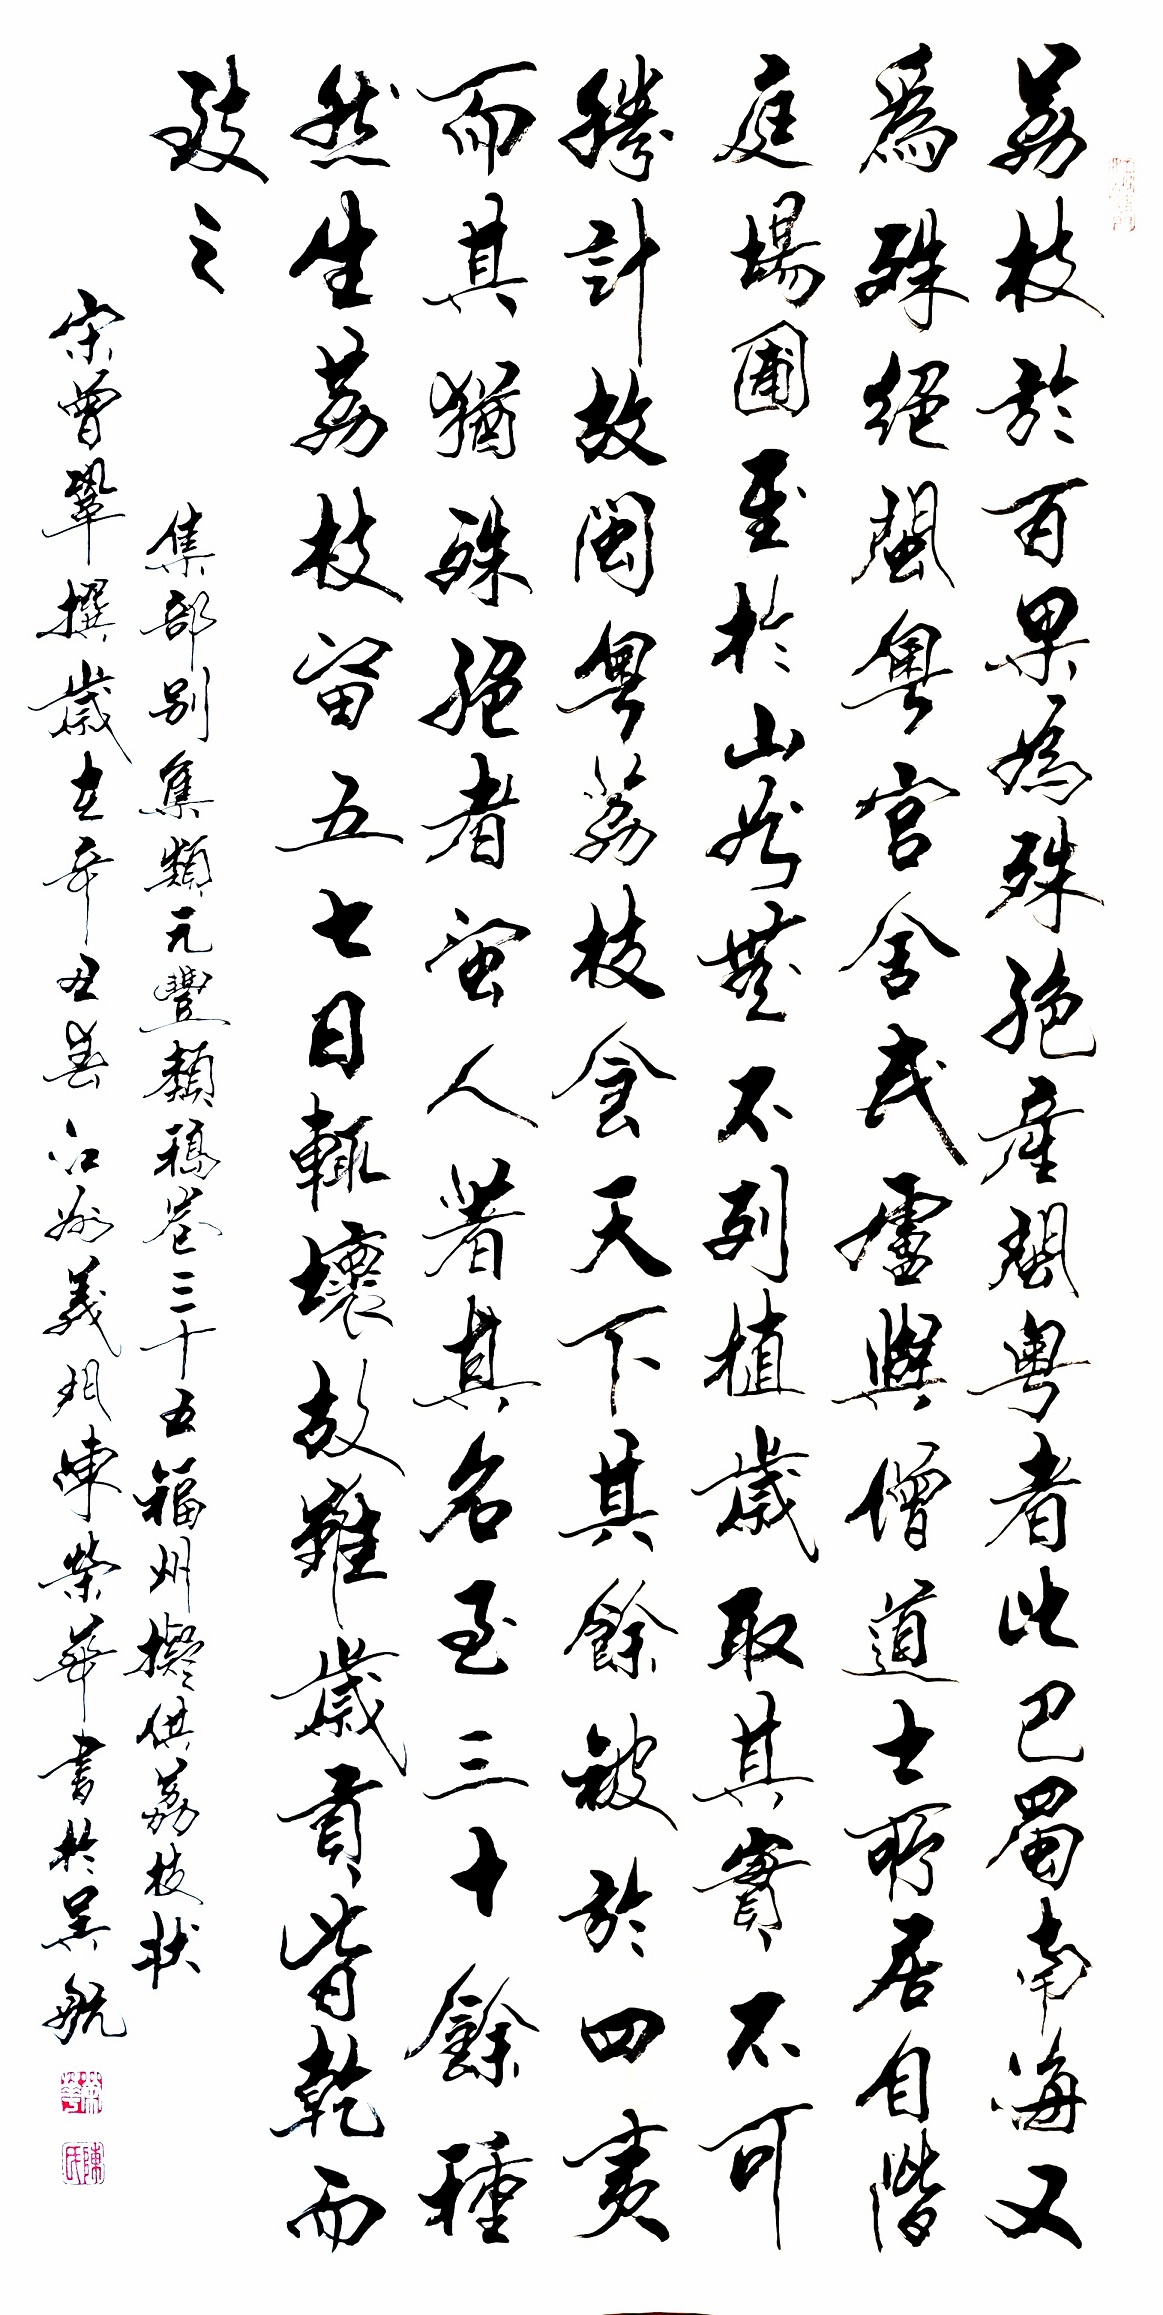 荔枝於百果為殊絕產閩粵者比巴蜀南海又
為殊絕閩粵官舍民廬與僧道士所居自階
庭場圃至於山谷無不列植歲取其實不可
勝計故閩粵荔枝食天下其餘被於四夷
而其猶殊絕者閩人著其名至三十餘種
然生荔枝留五七日輒壞故雖歲貢皆乾而
致之
集部別集類元豐類稿卷三十五福州擬供荔枝狀
宋曾鞏撰歲在辛丑春江州義門陳榮華書於吳航
榮華
陳氏